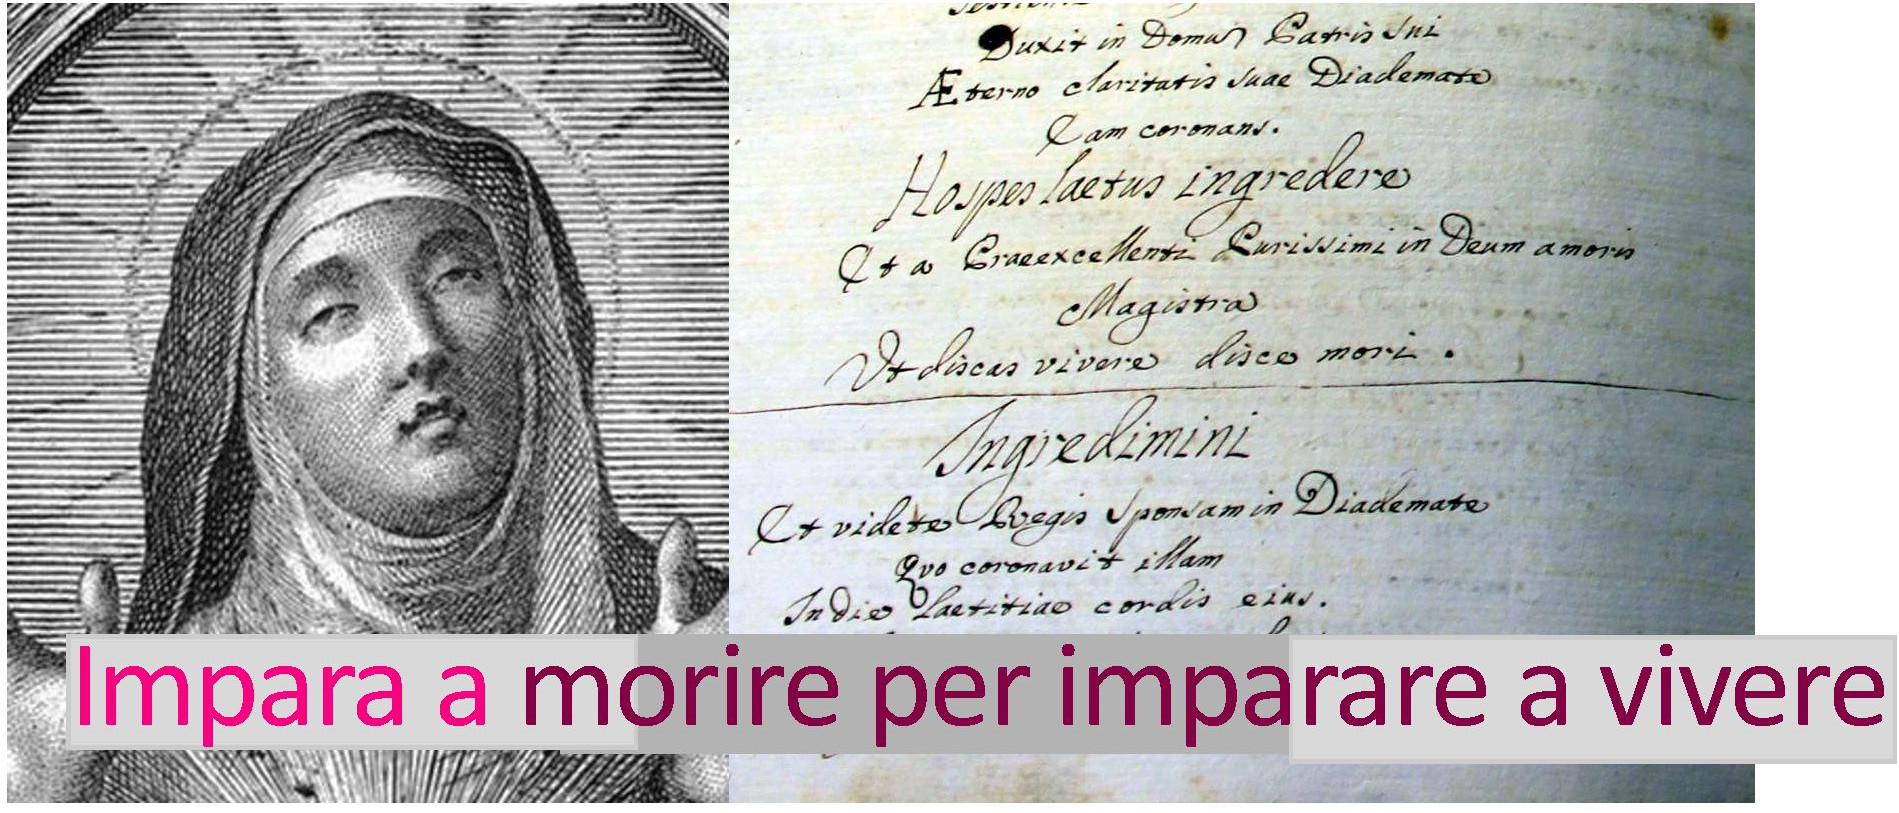 Duxit in Domum Patris sui
Æterno claritatis suae Diademate
Eam coronans.
Hospes laetus ingredere
Et a Praeexcellenti Purissimi in Deum amoris
Magistra
Ut discas vivere disce mori.
Ingredimini
Et videte Regis sponsam in Diademate
Quo coronavit illam
In die laetitiae cordis eius.
Impara a morire per imparare a vivere